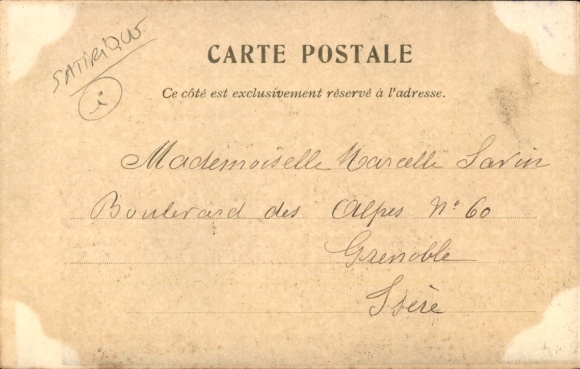 SATIRIQUE
i
CARTE POSTALE
Ce côté est exclusivement réservé à l'adresse.
Mademoiselle Marcelle Savin
Boulevard des Alpes N° 60
Grenoble
Isère